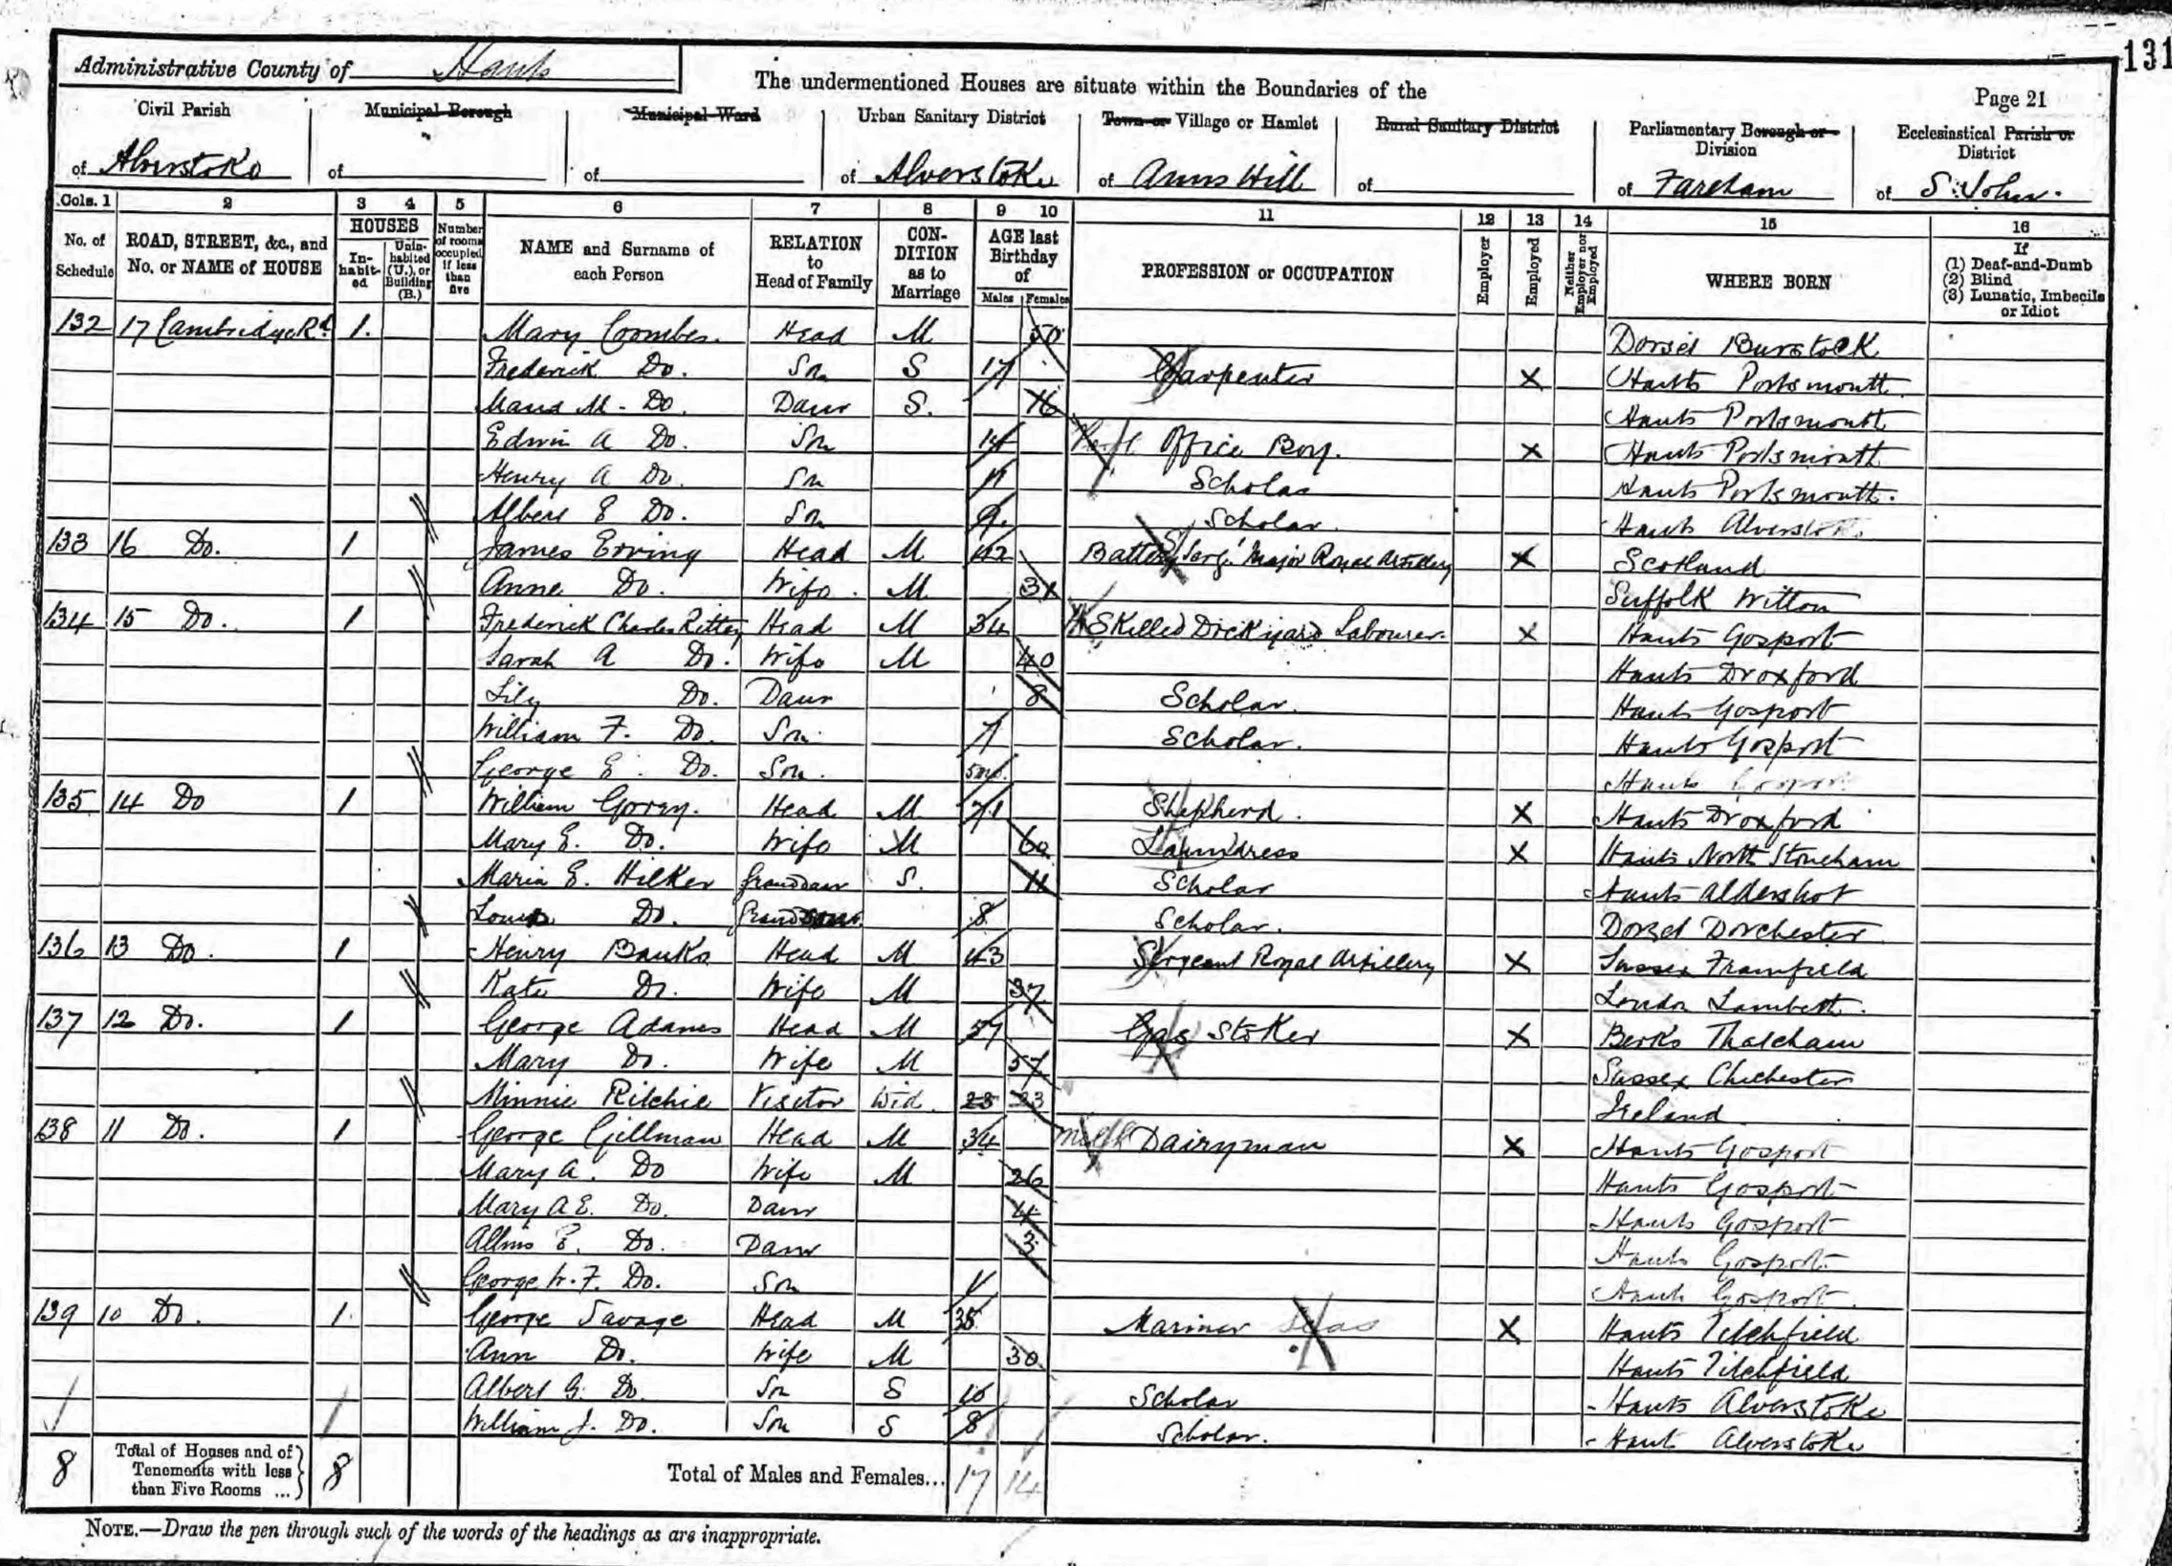 131
Administrative County of Hants
The undermentioned Houses are situate within the Boundaries of the
Page 21
Civil Parish of Alverstoke
Municipal Borough of
Municipal Ward of
Urban Sanitary District of Alverstoke
Town or Village or Hamlet of Anns Hill
Rural Sanitary District of
Parliamentary Borough or Division of Fareham
Ecclesiastical Parish or District of S. John.
Cols. 1 2 3 4 5 6 7 8 9 10 11 12 13 14 15 16
No. of Schedule
ROAD, STREET, &c., and No. or NAME of HOUSE
HOUSES
Inhabited
Uninhabited (U.), or Building (B.)
Number of rooms occupied if less than five
NAME and Surname of each Person
RELATION to Head of Family
CONDITION as to Marriage
AGE last Birthday of
Males Females
PROFESSION or OCCUPATION
Employer
Employed
Neither Employer nor Employed
WHERE BORN
If (1) Deaf-and-Dumb (2) Blind (3) Lunatic, Imbecile or Idiot
132 17 Cambridge Rd. 1. Mary Coombes. Head M 50 Dorset Burstock
Frederick Do. Son S 17 Carpenter X Hants Portsmouth
Maud M. Do. Daur S. 16 Hants Portsmouth
Edwin A Do. Son 14 Office Boy. X Hants Portsmouth
Henry A Do. Son 11 Scholar Hants Portsmouth.
Albert E Do. Son 9. Scholar. Hants Alverstoke
133 16 Do. 1 James Erving Head M 42 Battery Sergt Major Royal Artillery X Scotland
Anne Do. Wife. M Suffolk Witton
134 15 Do. 1 Frederick Charles Head M 34 Skilled Dockyard Labourer. X Hants Gosport
Sarah A Do. Wife M 40 Hants Droxford
Lily Do. Daur 8 Scholar. Hants Gosport
William F. Do. Son 7 Scholar. Hants Gosport
George E. Do. Son. Hants Gosport
135 14 Do 1 William Head M 71 Shepherd. X Hants Droxford
Mary E. Do. Wife M Laundress X Hants North Stoneham
Maria E. Hilker Grandaur S. 11 Scholar Hants Aldershot
Do. 8 Scholar. Dorset Dorchester
136 13 Do. 1 Henry Banks Head M 43 Sergeant Royal Artillery X Sussex Framfield
Kate Do. Wife M 37 London Lambeth.
137 12 Do. 1 George Adams Head M 57 Gas Stoker X Berks Thatcham
Mary Do. Wife M 57 Sussex Chichester
Minnie Ritchie Visitor Wid. 23 23 Ireland
138 11 Do. 1 George Gillman Head M 34 Milk Dairyman X Hants Gosport
Mary A. Do Wife M 26 Hants Gosport
Mary A E. Do. Daur 4 Hants Gosport
E. Do. Daur 3 Hants Gosport.
George W. F. Do. Son 1 Hants Gosport.
139 10 Do. 1. George Savage Head M Mariner Seas X Hants Titchfield
Ann Do. Wife M 30. Hants Titchfield
Albert G. Do. Son S 10 Scholar Hants Alverstoke
William J. Do. Son S 8 Scholar. Hants Alverstoke
8 Total of Houses and of Tenements with less than Five Rooms ... 8 Total of Males and Females... 17 14
NOTE.—Draw the pen through such of the words of the headings as are inappropriate.